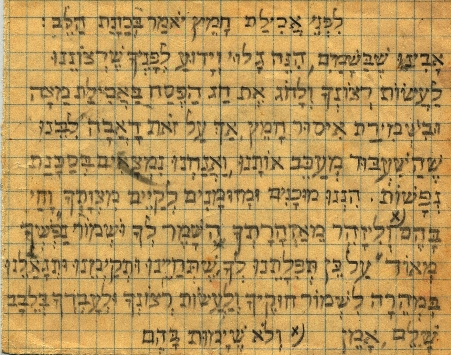 לִפְנֵי אֲכִילַת חָמֵץ יֹאמַר בְּכַוָּנַת הַלֵּב:
אָבִינוּ שֶׁבַּשָּׁמַיִם, הִנֵּה גָּלוּי וְיָדוּעַ לְפָנֶיךָ שֶׁרְצוֹנֵנוּ
לַעֲשׂוֹת רְצוֹנְךָ וְלָחוֹג אֶת חַג הַפֶּסַח בַּאֲכִילַת מַצָּה
וּבִשְׁמִירַת אִיסוּר חָמֵץ, אַךְ עַל זֹאת דָּאֲבָה לִבֵּנוּ
שֶׁהַשִּׁעְבּוּד מְעַכֵּב אוֹתָנוּ, וַאֲנַחְנוּ נִמְצָאִים בְּסַכָּנַת
נְפָשׁוֹת. הִנְנוּ מוּכָנִים וּמְזוּמָּנִים לְקַיֵּים מִצְוָתְךָ, וָחַי
בָּהֶם א) וְלִיזָּהֵר מֵאַזְהָרָתְךָ הִשָּׁמֶר לְךָ וּשְׁמוֹר נַפְשְׁךָ
מְאוֹד עַל כֵּן תְּפִלָּתֵנוּ לְךָ שֶׁתְּחַיֵּינוּ וּתְקַיְּמֵנוּ וְתִגְאָלֵנוּ
בִּמְהֵרָה לִשְׁמוֹר חוּקֶּיךָ וְלַעֲשׂוֹת רְצוֹנְךָ וּלְעָבְדְּךָ בְּלֵבָב
שָׁלֵם, אָמֵן א) וְלֹא שֶׁיָּמוּת בָּהֶם